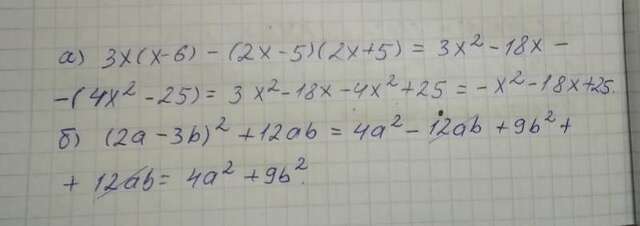 а) 3x(x-6) - (2x-5)(2x+5) = 3x² - 18x -
-(4x² - 25) = 3x² - 18x - 4x² + 25 = -x² - 18x + 25.
б) (2a - 3b)² + 12ab = 4a² - 12ab + 9b² +
+ 12ab = 4a² + 9b².